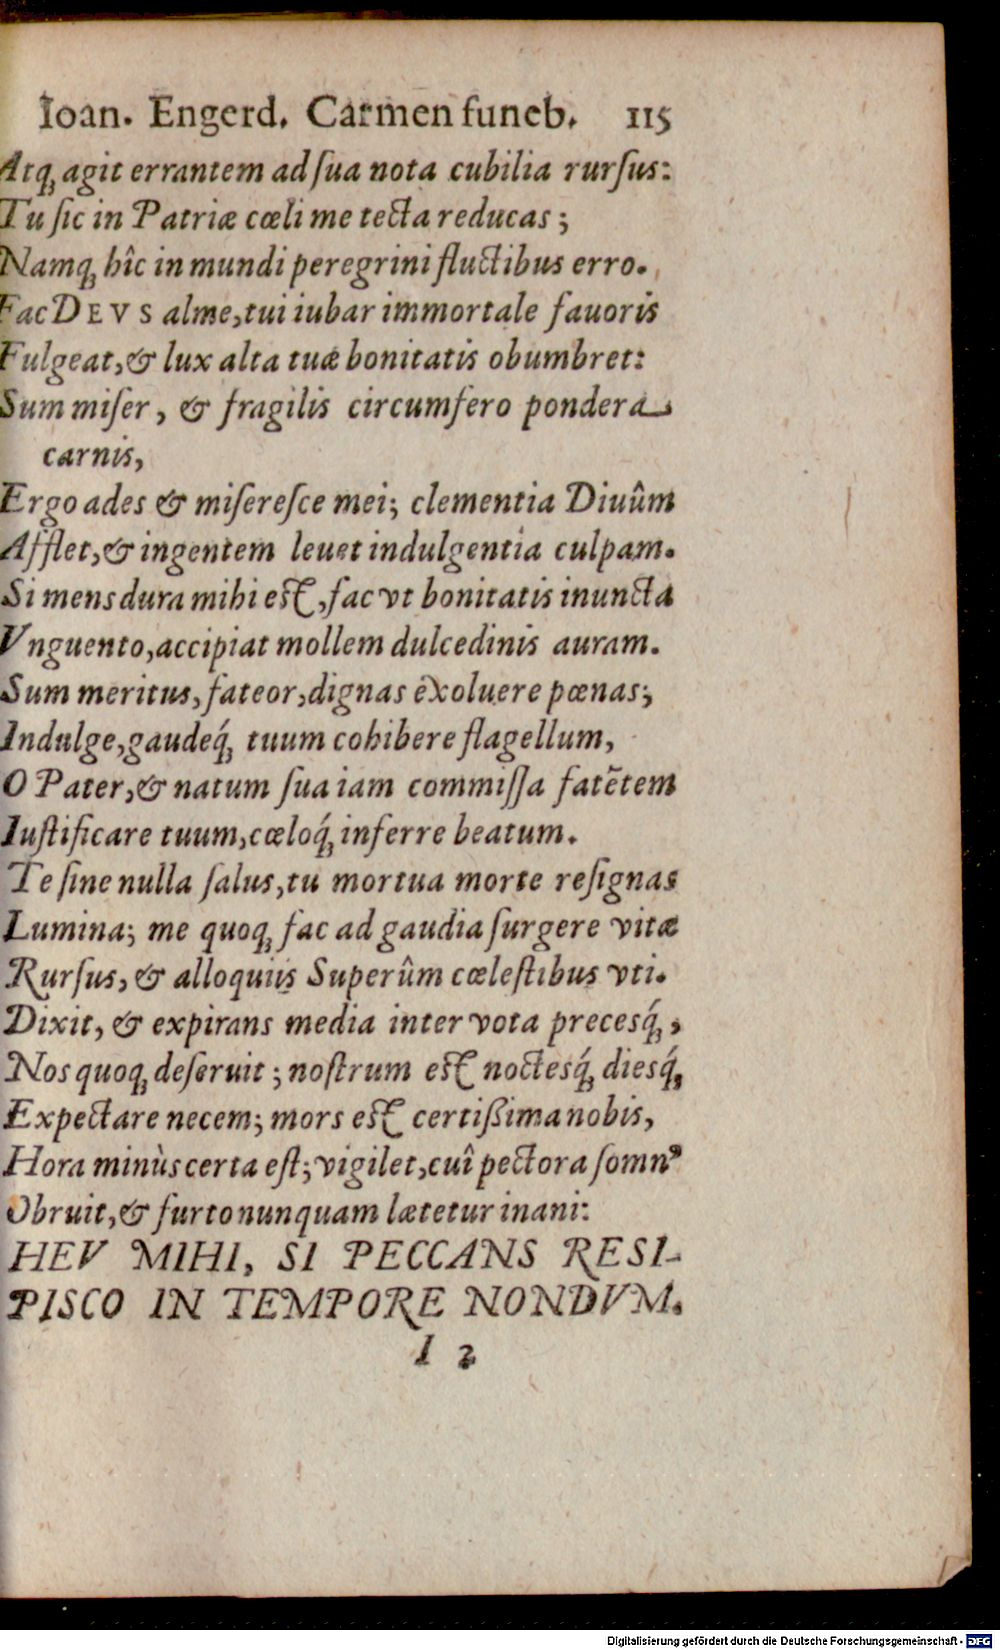 Ioan. Engerd. Carmen funeb. 115
Atq́ꝫ agit errantem ad ſua nota cubilia rurſus:
Tu ſic in Patriæ cœli me tecta reducas;
Namqꝫ hîc in mundi peregrini fluctibus erro.
Fac DEVS alme, tui iubar immortale fauoris
Fulgeat, & lux alta tuæ bonitatis obumbret:
Sum miſer, & fragilis circumfero pondera
carnis,
Ergo ades & miſereſce mei; clementia Diuûm
Afflet, & ingentem leuet indulgentia culpam.
Si mens dura mihi eſt, fac vt bonitatis inuncta
Vnguento, accipiat mollem dulcedinis auram.
Sum meritus, fateor, dignas exoluere pœnas;
Indulge, gaudeq́ꝫ tuum cohibere flagellum,
O Pater, & natum ſua iam commiſſa fatẽtem
Iuſtificare tuum, cœloq́ꝫ inferre beatum.
Te ſine nulla ſalus, tu mortua morte reſignas
Lumina; me quoqꝫ fac ad gaudia ſurgere vitæ
Rurſus, & alloquiis Superûm cœleſtibus vti.
Dixit, & expirans media inter vota precesq́ꝫ,
Nos quoqꝫ deſeruit; noſtrum eſt noctesq́ꝫ diesq́ꝫ
Expectare necem; mors eſt certißima nobis,
Hora minùs certa eſt; vigilet, cuî pectora ſomnꝰ
Obruit, & furto nunquam lætetur inani:
HEV MIHI, SI PECCANS RESI-
PISCO IN TEMPORE NONDVM.
I 2
Digitalisierung gefördert durch die Deutsche Forschungsgemeinschaft - DFG